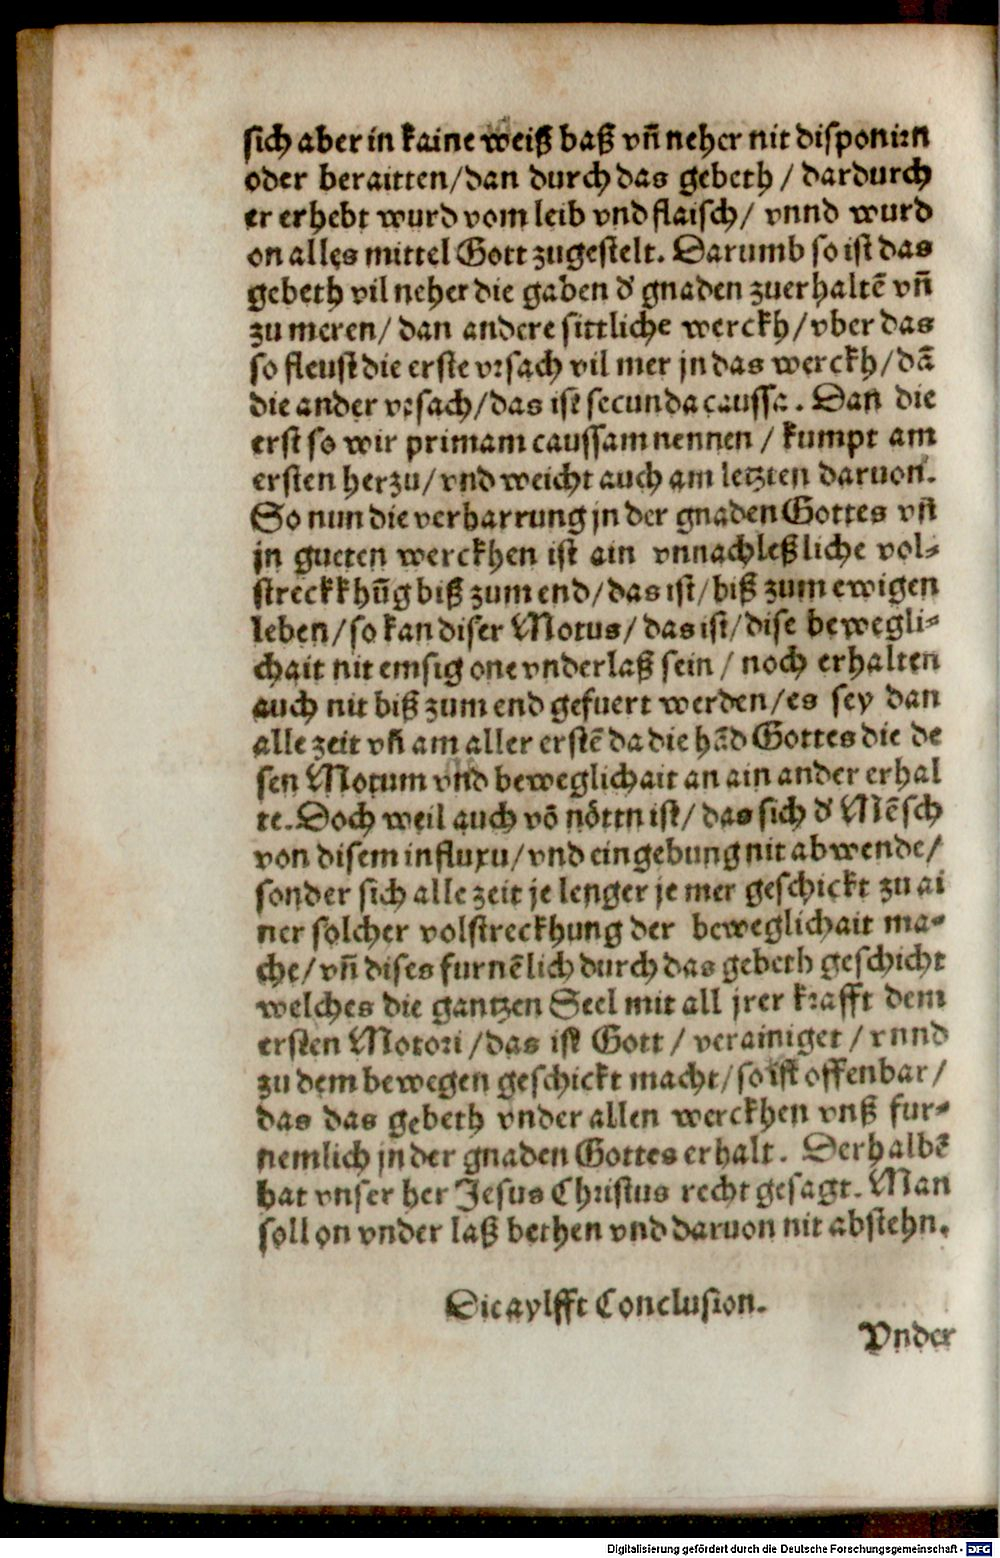 sich aber in kaine weiß baß vñ neher nit disponirn
oder beraitten/dan durch das gebeth / dardurch
er erhebt wurd vom leib vnd flaisch/ vnnd wurd
on alles mittel Gott zugestelt. Darumb so ist das
gebeth vil neher die gaben d' gnaden zuerhaltē vñ
zu meren/ dan andere sittliche werckh/vber das
so fleust die erste vrsach vil mer jn das werckh/dā
die ander vrsach/das ist secunda caussa. Dan die
erst so wir primam caussam nennen / kumpt am
ersten herzu/vnd weicht auch am letzten daruon.
So nun die verharrung jn der gnaden Gottes vñ
jn gueten werckhen ist ain vnnachleßliche vol-
streckkhūg biß zum end/das ist/biß zum ewigen
leben/so kan diser Motus/das ist/dise bewegli-
chait nit emsig one vnderlaß sein / noch erhalten
auch nit biß zum end gefuert werden/es sey dan
alle zeit vñ am aller erstē da die hād Gottes die de
sen Motum vnd beweglichait an ain ander erhal
te. Doch weil auch vō nöttn ist/das sich d' Mēsch
von disem influxu/vnd eingebung nit abwende/
sonder sich alle zeit je lenger je mer geschickt zu ai
ner solcher volstreckhung der beweglichait ma-
che/vñ dises furnēlich durch das gebeth geschicht
welches die gantzen Seel mit all jrer krafft dem
ersten Motori /das ist Gott / verainiget / vnnd
zu dem bewegen geschickt macht/so ist offenbar/
das das gebeth vnder allen werckhen vnß fur-
nemlich jn der gnaden Gottes erhalt. Derhalbē
hat vnser her Jesus Christus recht gesagt. Man
soll on vnder laß bethen vnd daruon nit abstehn.
Die aylfft Conclusion.
Vnder
Digitalisierung gefördert durch die Deutsche Forschungsgemeinschaft - DFG